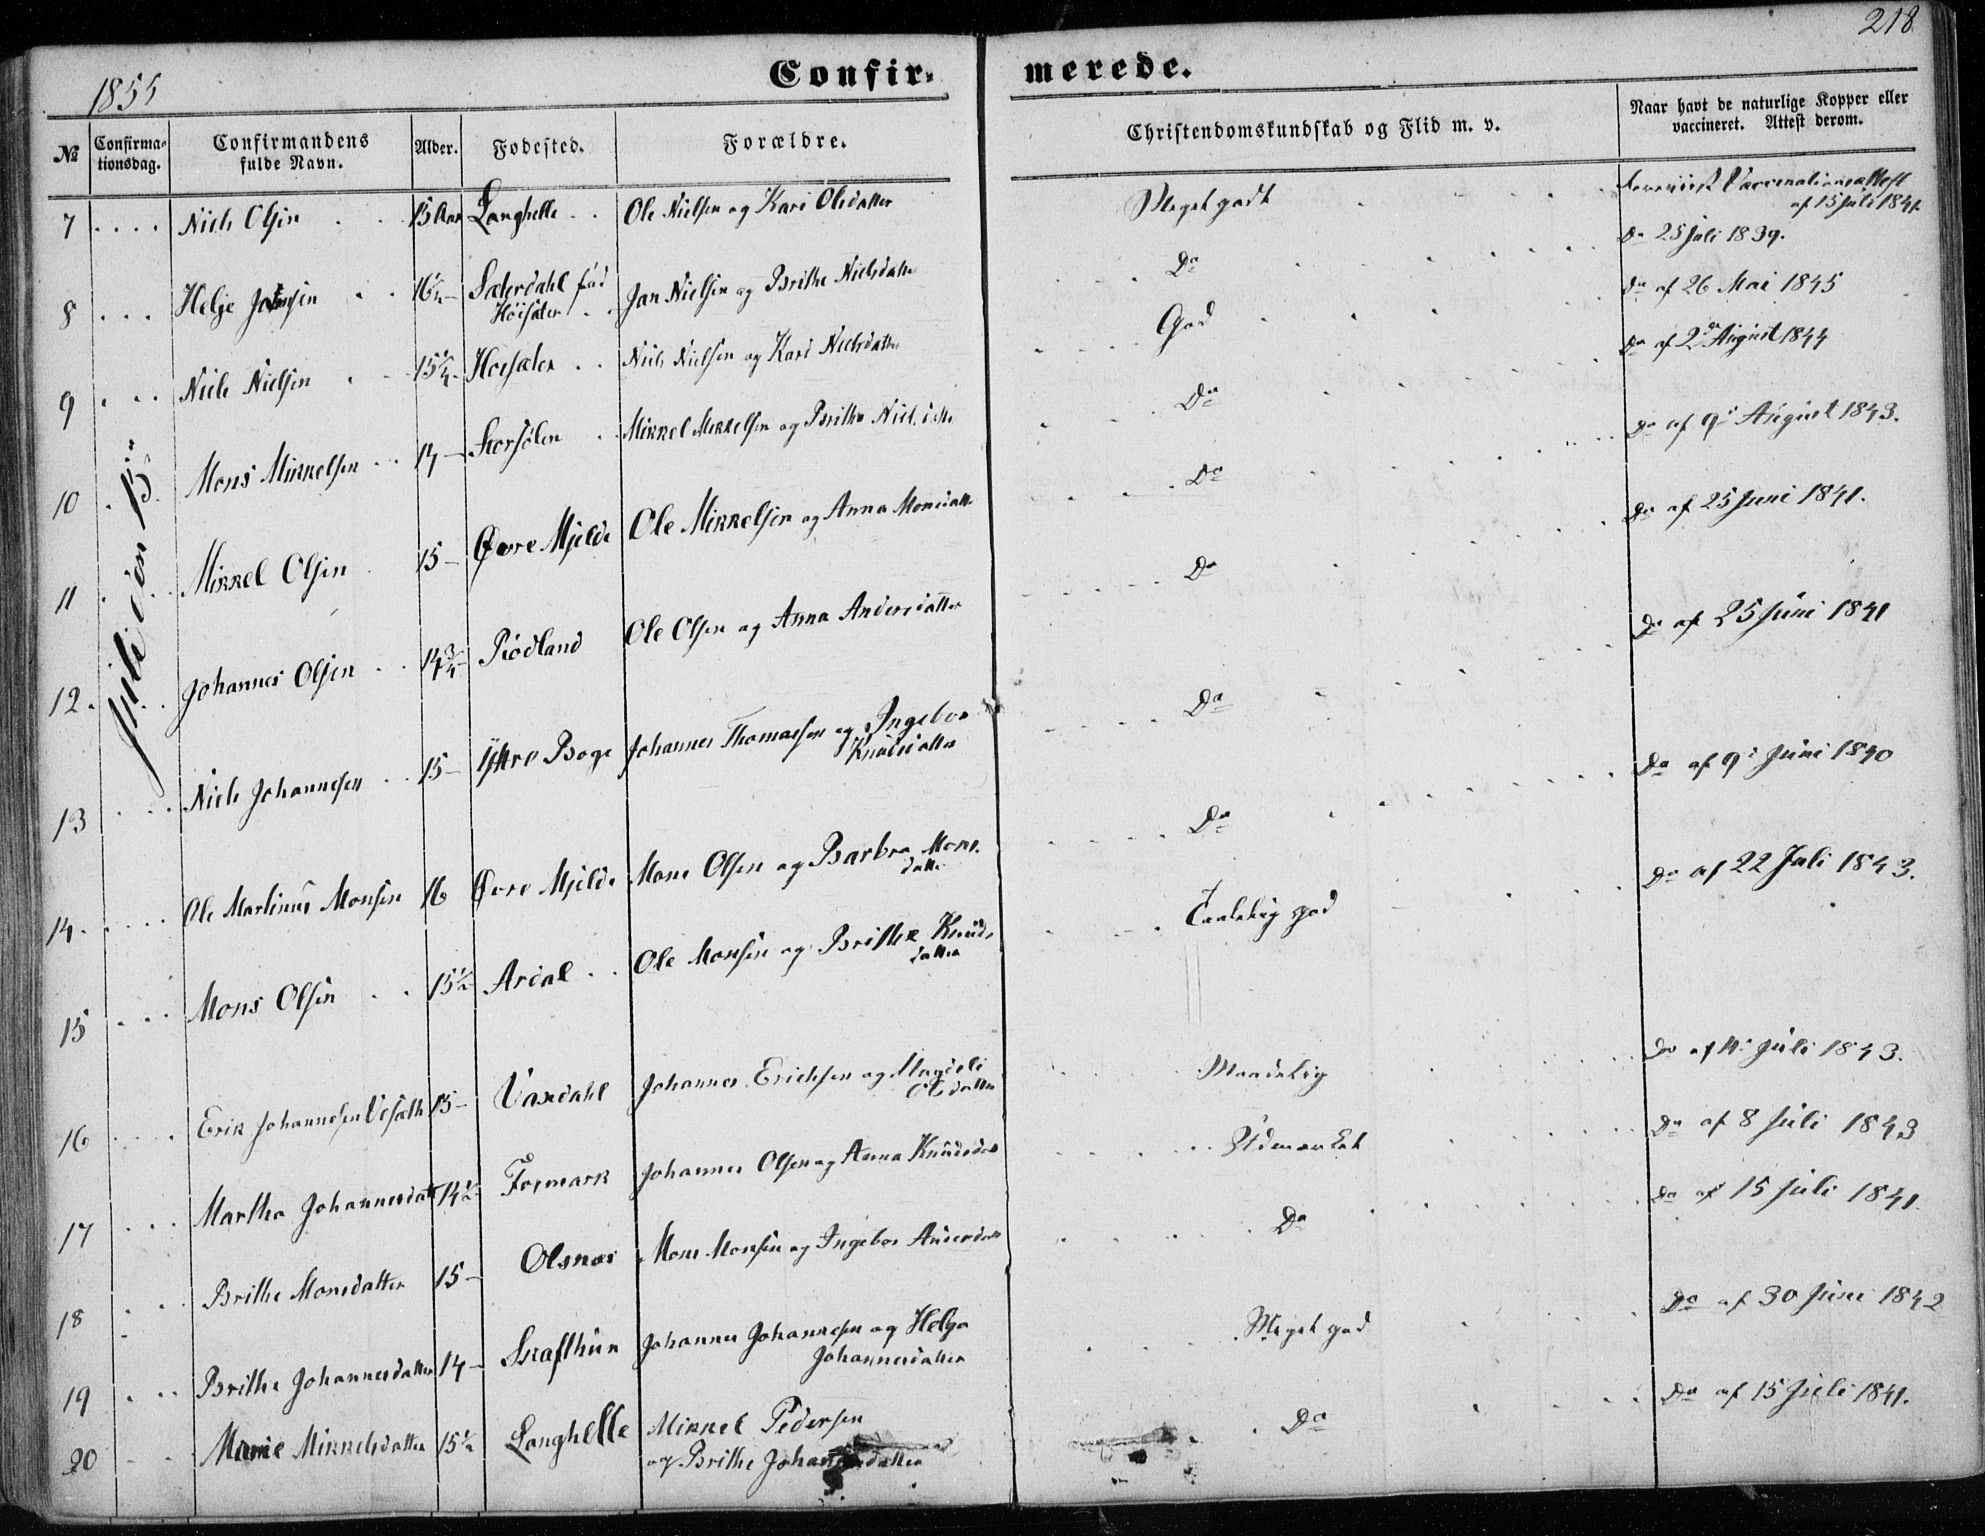 218
1855
Confir- merede.
№ Confirma-tionsdag. Confirmandens fulde Navn. Alder. Fødested. Forældre. Christendomskundskab og Flid m. v. Naar havt de naturlige Kopper eller vaccineret. Attest derom.
7 Niels Olsen 15 Aar Langhelle Ole Nielsen og Kari Olsdatter Meget godt Vaccinationsattest af 15 Juli 1841.
8 Helje Jansen 16¼ Sæterdahl fød Høisæter Jan Nielsen og Brithe Nielsdatter Do Do 25 Juli 1839.
9 Niels Nielsen 15¼ Høisæter Niels Nielsen og Kari Nielsdatter God Do af 26 Mai 1845
10 Mons Mikkelsen 14 Mikkel Mikkelsen og Brithe Do Do af 2 August 1844
11 Mikkel Olsen 15 Øvre Mjelde Ole Mikkelsen og Anna Monsdatter Do Do af 9 August 1843.
12. Johannes Olsen 14¾ Rødland Ole Olsen og Anna Andersdatter Do Do af 25 Juni 1841.
13 Niels Johannesen 15 Yttre Boge Johannes Thomassen og Ingebor Knudsdatter Do Do af 25 Juni 1841
14. Ole Martinus Monsen 16 Øvre Mjelde Mons Olsen og Barbra Monsdatter Do Do af 9 Juni 1840
15 Mons Olsen 15½ Ardal Ole Monsen og Brithe Knudsdatter Taalelig god Do af 22 Juli 1843.
16 Erik Johannesen 15 Vaxdahl Johannes Erichsen og Magdeli Olsdatter Maadelig Do af 4 Juli 1843.
17 Martha Johannesdatt 14½ Foxmark Johannes Olsen og Anna Knudsdatt Udmærket Do af 8 Juli 1843
18 Brithe Monsdatter 15 Olsnæs Mons Monsen og Ingebor Andersdatt Do Do af 15 Juli 1841.
19 Brithe Johannesdatter 14 Skafthun Johannes Johannesen og Helga Johannesdatter Meget god Do af 30 Juni 1842
20 Marie Mikkelsdatter 15½ Langhelle Mikkel Pedersen og Brithe Johannesdatter Do Do af 15 Juli 1841.
Juli den 15